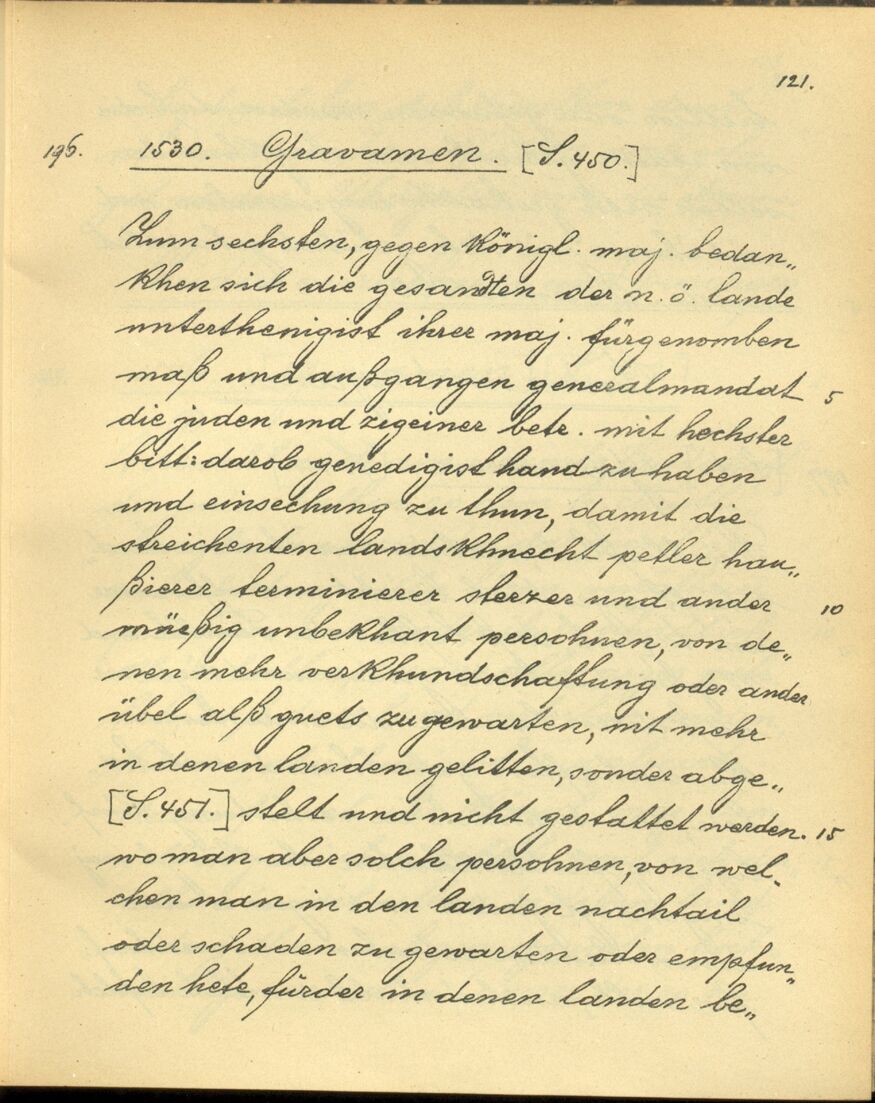 121.
196. 1530. Gravamen. [S. 450.]
Zum sechsten, gegen königl. maj. bedan„
khen sich die gesandten der n. ö. lande
unterthenigist ihrer maj. fürgenomben
maß und außgangen generalmandat 5
die juden und zigeiner betr. mit hechster
bitt: darob genedigist hand zu haben
und einsechung zu thun, damit die
streichenten landskhnecht petler hau„
ßierer terminierer sterzer und ander 10
müeßig unbekhant persohnen, von de„
nen mehr verkhundschaftung oder ander
übel alß guets zugewarten, nit mehr
in denen landen gelitten, sonder abge„
[S. 451.] stelt und nicht gestattet werden. 15
wo man aber solch persohnen, von wel„
chen man in den landen nachtail
oder schaden zu gewarten oder empfun„
den hete, fürder in denen landen be„